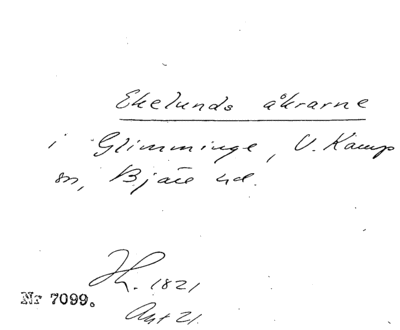 Ekelunds åkrarne
i Glimminge, V. Kamp
sn, Bjäre hd.
H. 1821
Akt 21.
Nr 7099.